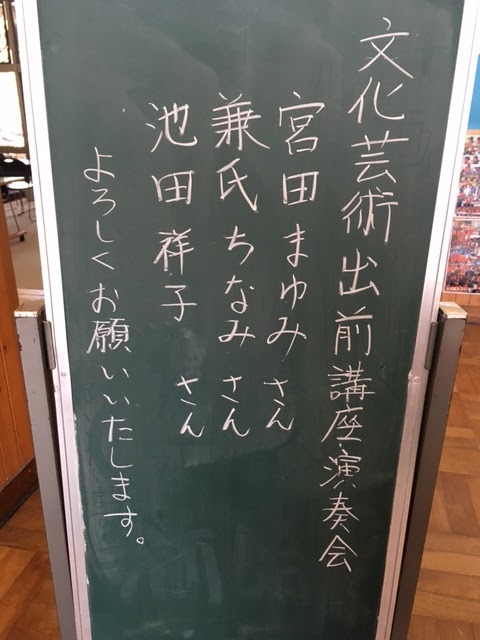 文化芸術出前講座演奏会
宮田まゆみ さん
兼氏ちなみ さん
池田祥子 さん
よろしくお願いいたします。